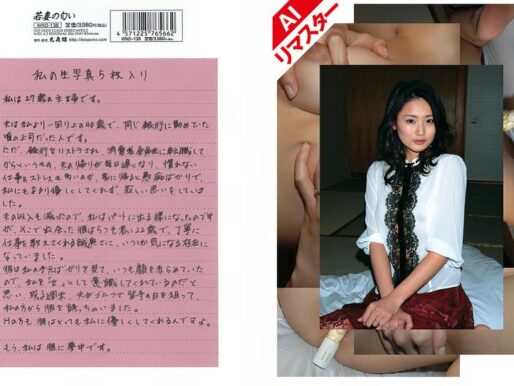 若妻の匂い
WND-138 定価3,980円(税込)
4571225765662
私の生写真5枚入り
私は27歳の主婦です。
夫は私より一回り上の40歳で、同じ銀行に勤めていた
頃の上司だった人です。
ただ、銀行をリストラされ、消費者金融に転職して
からというもの、夫の帰りが毎日遅くなり、慣れない
仕事のストレスも多いのか、家に帰ると愚痴ばかりで、
私にもあまり優しくしてくれず、寂しい思いをしていま
した。
夫の収入も減ったので、私はパートに出る様になったのです
が、そこで出会った彼はうちも若い22歳で、丁寧に
仕事を教えてくれる誠実さに、いつしか気になる存在に
なっていました。
彼は私の手元ばかりを見て、いつも顔を赤らめていた
ので、私を「女」として意識してくれているのだと
思い、或る週末、夫がゴルフで留守の日を狙って、
私の方から彼を誘っちゃいました。
Hの方も、彼はとっても私に優しくしてくれるんですよ。
もう、私は彼に夢中です。
AI
リマスター